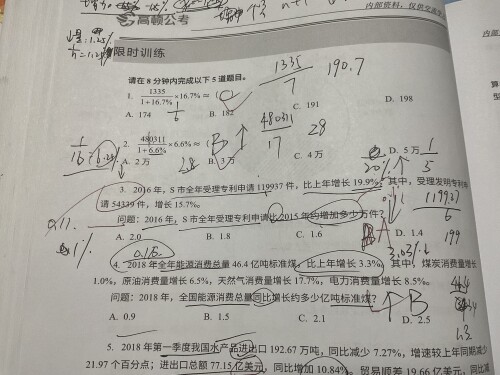 高顿公考
内部资料，仅供交流学
限时训练
请在 8 分钟内完成以下 5 道题目。
1. 1335/1+16.7% ×16.7%≈（
A. 174 B. 182 C. 191 D. 198
1335/7 190.7
2. 480311/1+6.6% ×6.6%≈（ B
A. 2 万 B. 3 万 C. 4 万 D. 5 万
480311/17 28
3. 2016 年，S 市全年受理专利申请 119937 件，比上年增长 19.9%。其中，受理发明专利申
请 54339 件，增长 15.7%。
问题：2016 年，S 市全年受理专利申请比 2015 年约增加多少万件？
A. 2.0 B. 1.8 C. 1.6 D. 1.4
119937/6
199
4. 2018 年全年能源消费总量 46.4 亿吨标准煤，比上年增长 3.3%。其中，煤炭消费量增长
1.0%，原油消费量增长 6.5%，天然气消费量增长 17.7%，电力消费量增长 8.5%。
问题：2018 年，全国能源消费总量同比增长约多少亿吨标准煤？
A. 0.9 B. 1.5 C. 2.1 D. 2.5
5. 2018 年第一季度我国水产品进出口 192.67 万吨，同比减少 7.27%，增速较上年同期减少
21.97 个百分点；进出口总额 77.15 亿美元，同比增加 10.84%。贸易顺差 19.66 亿美元，同